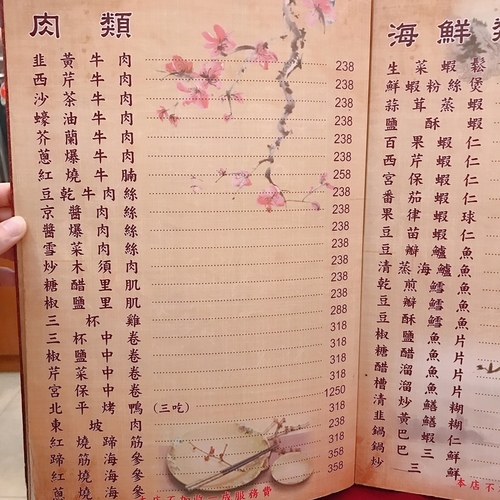 肉類
韭黃牛肉 238
西芹牛肉 238
沙茶牛肉 238
蠔油牛肉 238
芥蘭牛肉 238
蔥爆牛肉 238
紅燒牛腩 258
豆乾牛肉絲 238
京醬肉絲 238
醬爆肉絲 238
雪菜肉絲 238
炒木須肉 238
糖醋里肌 238
椒鹽里肌 238
三杯雞 288
三杯中卷 318
椒鹽中卷 318
芹菜中卷 318
宮保中卷 318
北平烤鴨(三吃) 1250
東坡肉 238
紅燒蹄筋 318
蹄筋海參 358
紅燒海參 358
蔥
海鮮類
生菜蝦鬆
鮮蝦粉絲煲
蒜茸蒸蝦
鹽酥蝦
百果蝦仁
西芹蝦仁
宮保蝦仁
番茄蝦仁
果律蝦球
豆苗蝦仁
豆瓣鱸魚
清蒸海鱸魚
乾煎鱈魚
豆瓣鱈魚
豆酥鱈魚
椒鹽魚片
糖醋魚片
醋溜魚片
糟溜魚片
清炒鱔糊
韭黃鱔糊
鍋巴蝦仁
鍋巴三鮮
炒三鮮